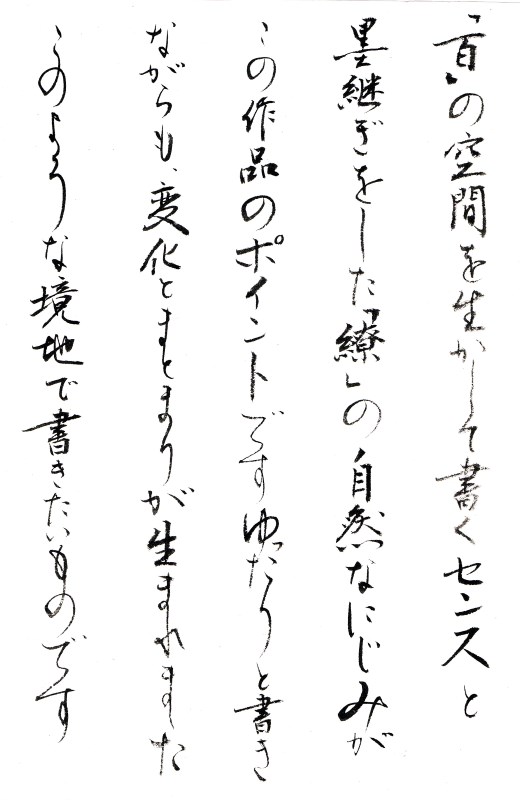 「百」の空間を生かして書くセンスと
墨継ぎをした「繚」の自然なにじみが
この作品のポイントですゆったりと書き
ながらも、変化とまとまりが生まれました
このような境地で書きたいものです